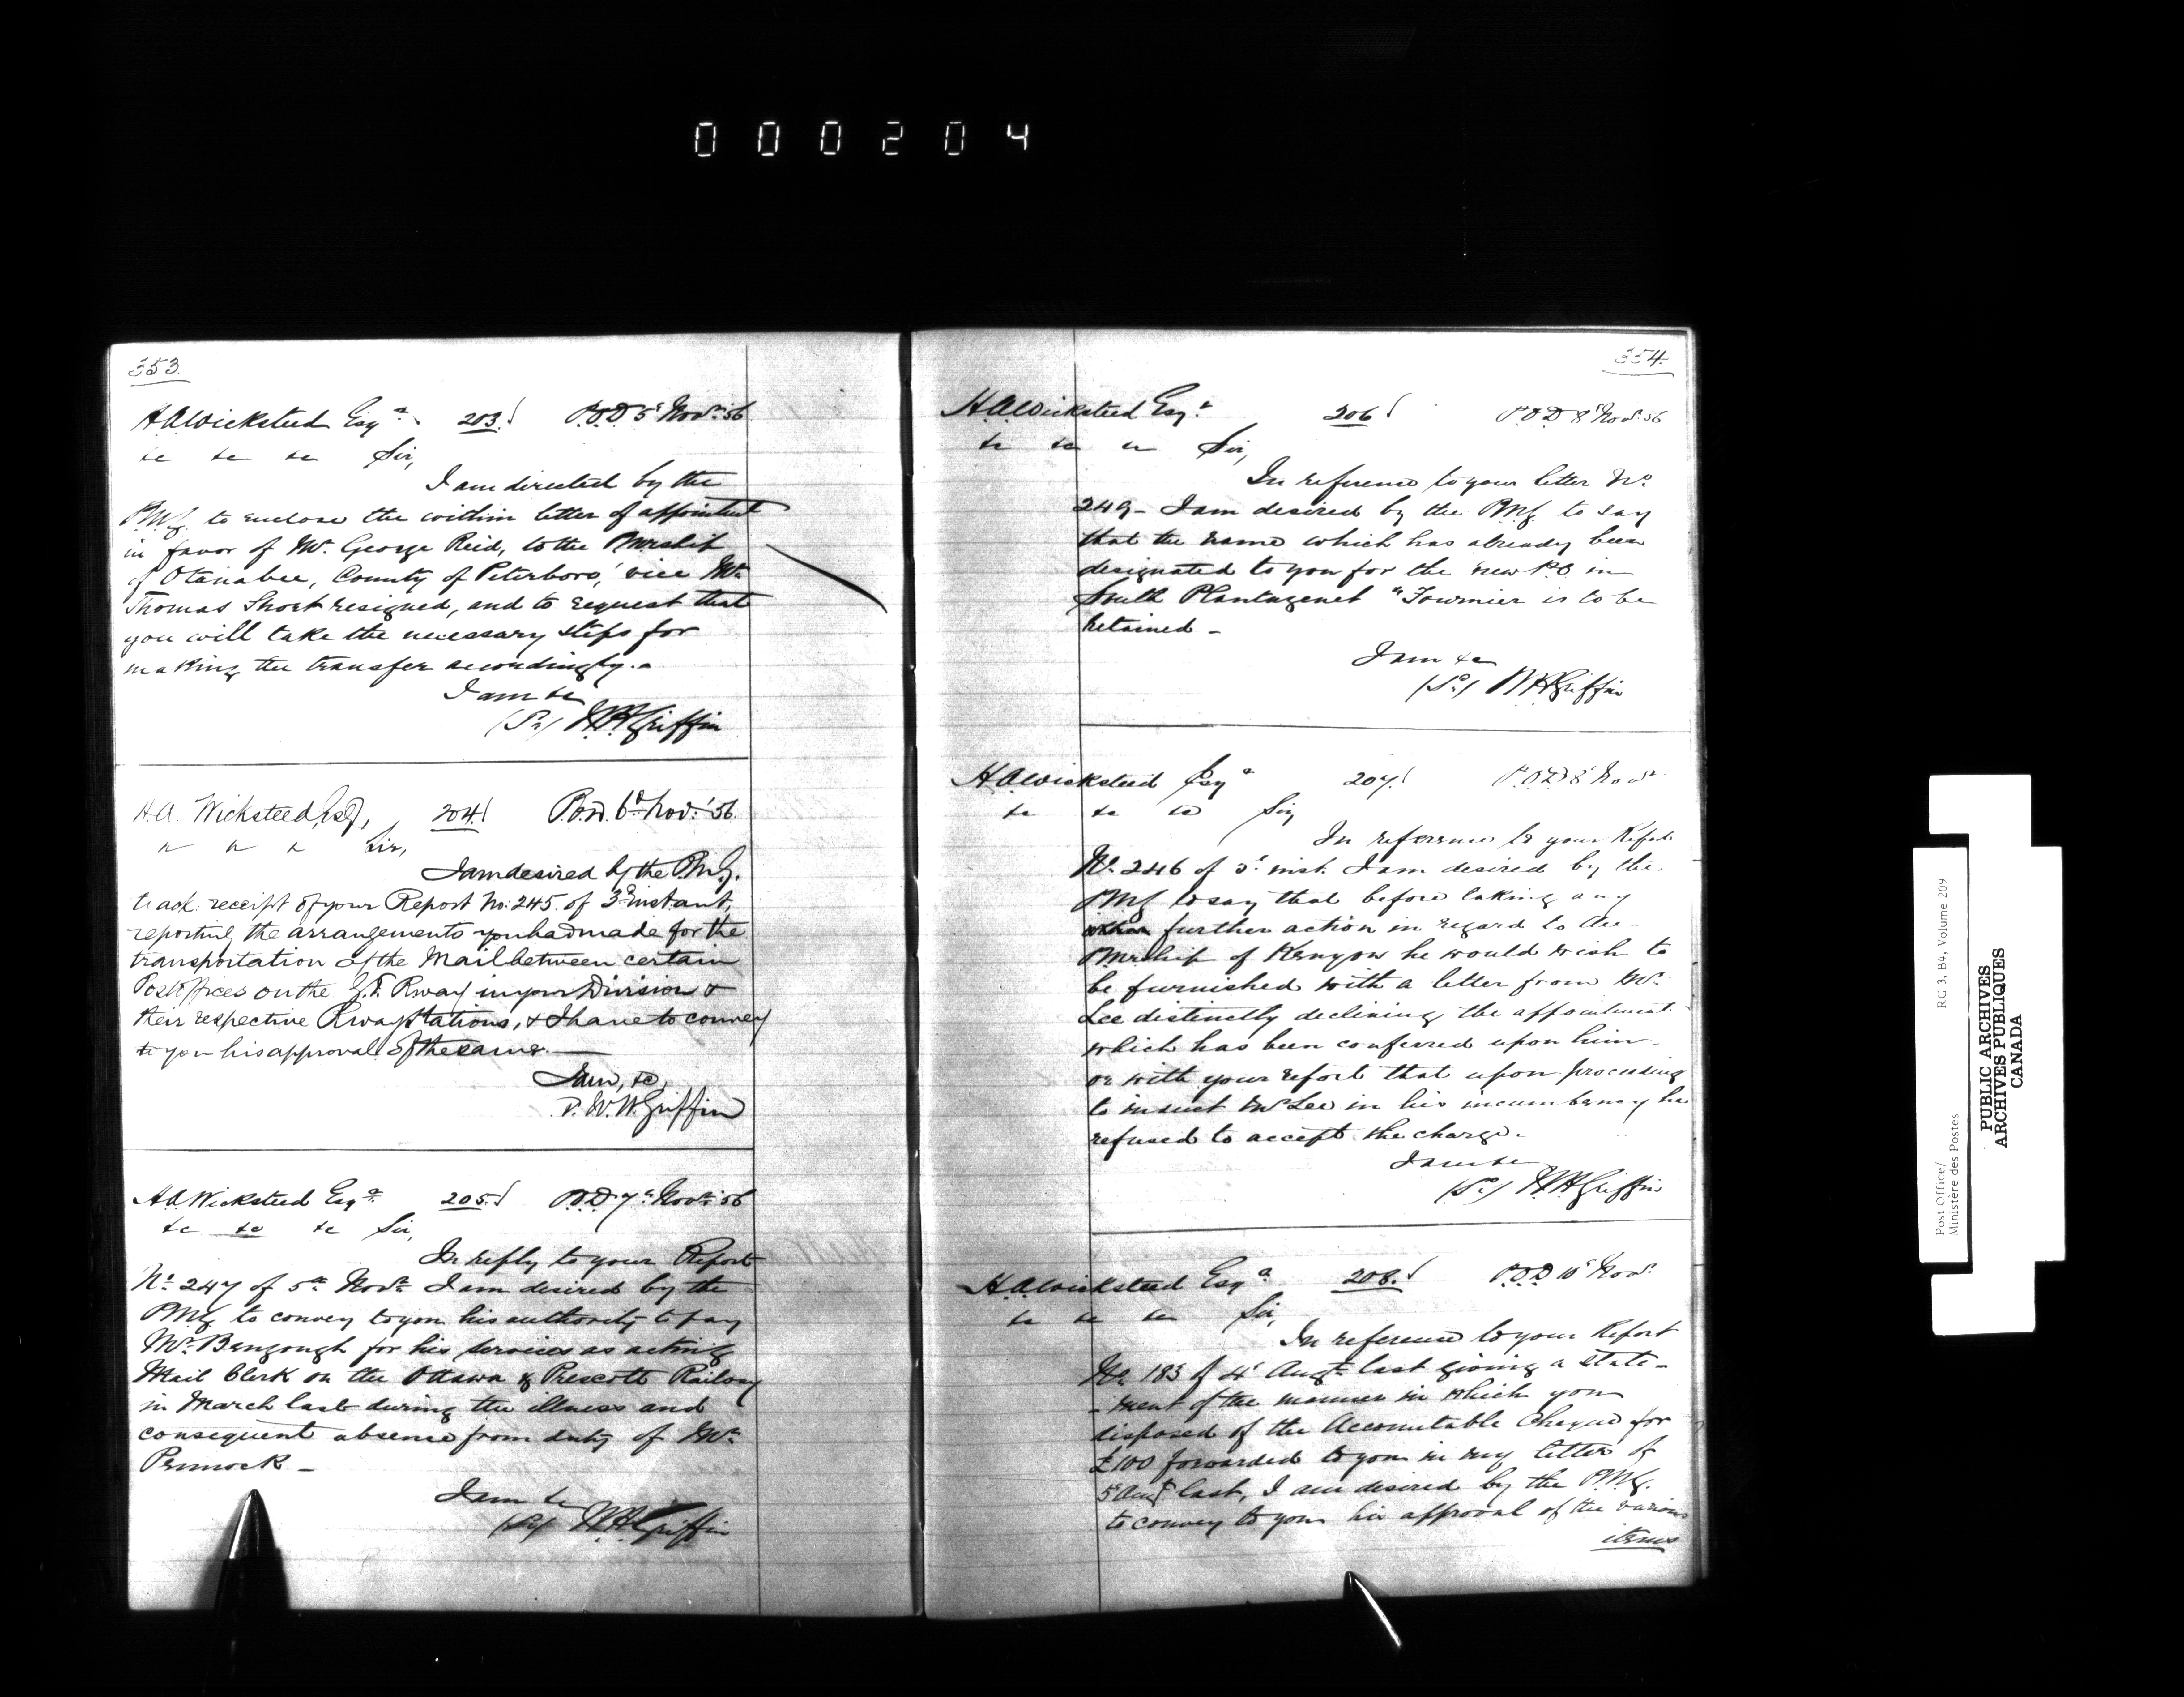 000204
353.
H.A. Wicksteed Esqr. 203. P.O.D 5 Novr. 56
&c &c &c Sir,
I am directed by the
P.M.G. to enclose the within letter of appointmt
in favor of Mr. George Reid, to the Pmrship
of Otanabee, County of Peterboro', vice Mr.
Thomas Short resigned, and to request that
you will take the necessary steps for
making the transfer accordingly.-
I am &c
W.H. Griffin
H.A. Wicksteed, Esq, 204. P.O.D. 6th Nov. '56.
Sir,
I am desired by the P.M.G.
to ack: receipt of your Report No: 245. of 3d instant,
reporting the arrangements you had made for the
transportation of the Mail between certain
Post Offices on the G.T. Rway in your Division &
their respective Rway Stations, & I have to convey
to you his approval of the same.
I am, &c,
W.H. Griffin
H.A. Wicksteed Esqr. 205. P.O.D. 7 Novr. 56
&c &c &c Sir,
In reply to your Report
No. 247 of 5th Novr. I am desired by the
PMG to convey to you his authority to pay
Mr. Bengough for his services as acting
Mail Clerk on the Ottawa & Prescott Railway
in March last during the illness and
consequent absence from duty of Mr.
Pennock -
I am &c
W.H. Griffin
354.
H.A. Wicksteed Esqr. 206 P.O.D 8 Novr. 56
&c &c &c Sir,
In reference to your letter No.
249 - I am desired by the PMG to say
that the name which has already been
designated to you for the new P.O in
South Plantagenet "Fournier is to be
retained -
I am &c
W H Griffin
H.A. Wicksteed Esqr. 207. P.O.D 8 Novr.
&c &c &c Sir,
In reference to your Report
No. 246 of 3d inst. I am desired by the
PMG to say that before taking any
further action in regard to the
Pmrship of Kenyon he would wish to
be furnished with a letter from Mr.
Lee distinctly declining the appointment
which has been conferred upon him -
or with your report that upon proceeding
to Mr Lee in his incumbency he
refused to accept the charge.
I am &c
W H Griffin
H.A. Wicksteed Esqr. 208. P.O.D 10 Novr.
&c &c &c Sir,
In reference to your Report
No. 183 of 4 Augt. last giving a state-
-ment of the manner in which you
disposed of the Accountable Cheque for
£100 forwarded to you in my letter of
5 Augt. last, I am desired by the P.M.G.
to convey to you his approval of the various
items
Post Office/
Ministère des Postes
RG 3, B4, Volume 209
PUBLIC ARCHIVES
ARCHIVES PUBLIQUES
CANADA